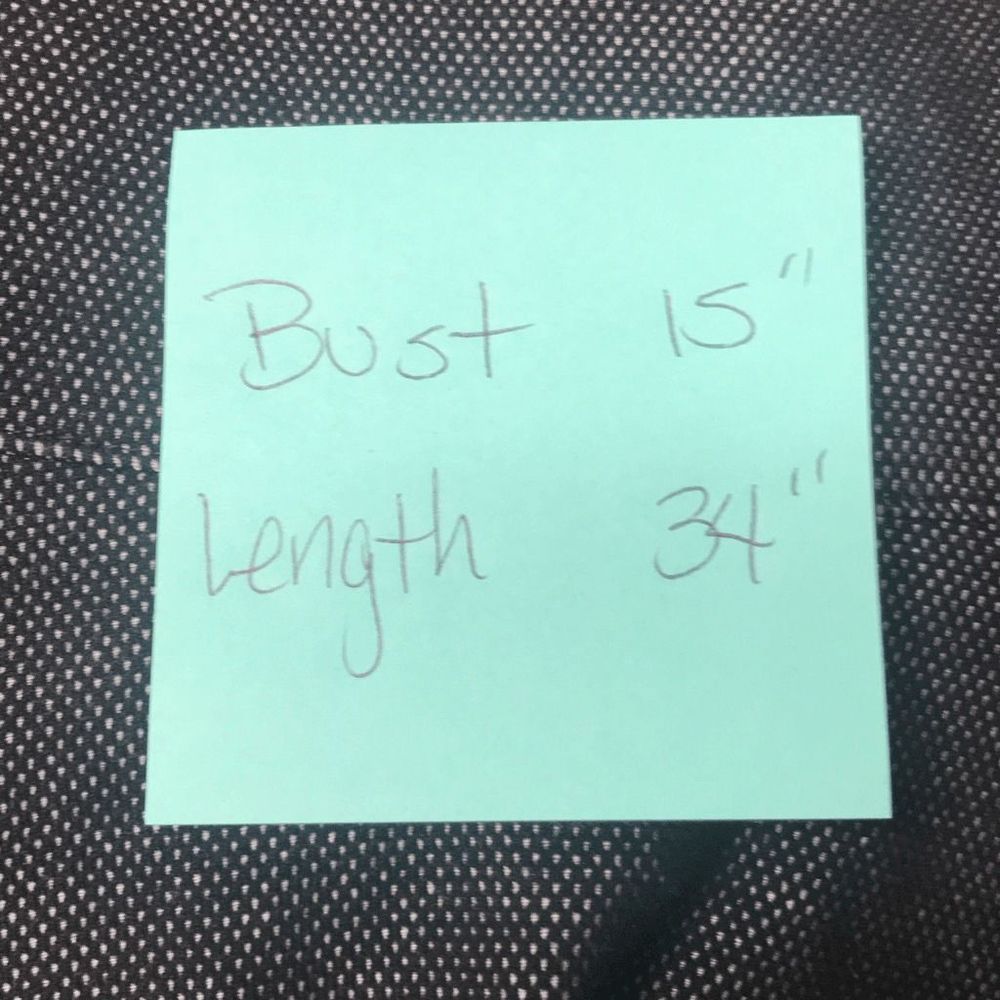 Bust 15"
Length 34"